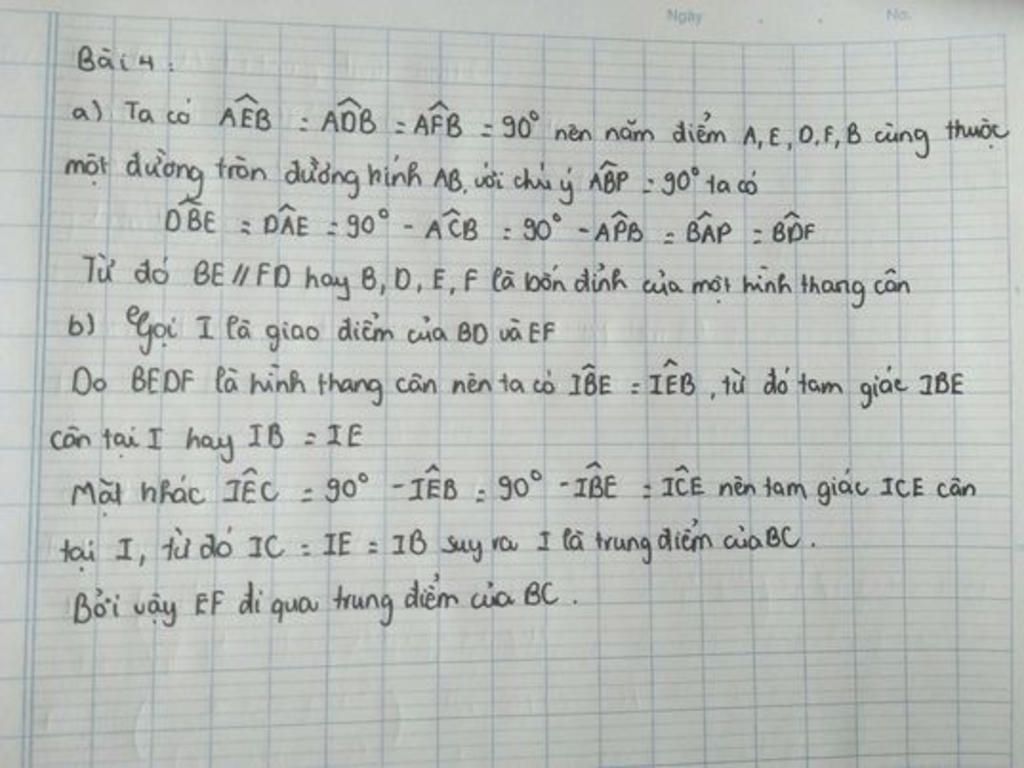 Ngày No.
Bài 4:
a) Ta có AÊB = AD̂B = AF̂B = 90° nên năm điểm A, E, D, F, B cùng thuộc
một đường tròn đường kính AB, với chú ý AB̂P = 90° ta có
DB̂E = DÂE = 90° - AĈB = 90° - AP̂B = BÂP = BD̂F
Từ đó BE // FD hay B, D, E, F là bốn đỉnh của một hình thang cân
b) Gọi I là giao điểm của BD và EF
Do BEDF là hình thang cân nên ta có IB̂E = IÊB, từ đó tam giác IBE
cân tại I hay IB = IE
Mặt khác IÊC = 90° - IÊB = 90° - IB̂E = IĈE nên tam giác ICE cân
tại I, từ đó IC = IE = IB suy ra I là trung điểm của BC.
Bởi vậy EF đi qua trung điểm của BC.